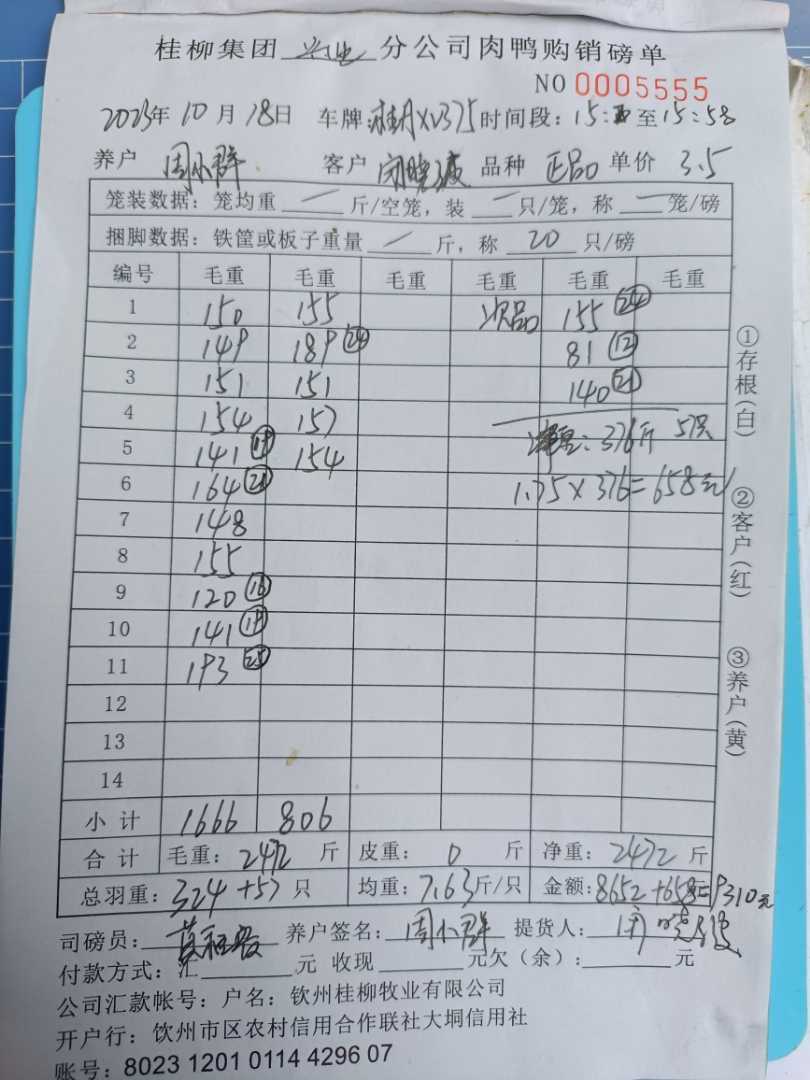 桂柳集团 兴业 分公司肉鸭购销磅单
NO 0005555
2023年 10 月 18日 车牌: 时间段: 15: 至 15:58
养户 周小群 客户 闭晓波 品种 正品 单价 3.5
笼装数据: 笼均重 — 斤/空笼, 装 — 只/笼, 称 — 笼/磅
捆脚数据: 铁筐或板子重量 — 斤, 称 20 只/磅
编号 毛重 毛重 毛重 毛重 毛重 毛重
1 150 155 次品 155 (24)
2 149 189 (24) 81 (12)
3 151 151 140 (21)
4 154 157
5 141 (19) 154 净重: 376斤 57只
6 164 (21) 1.75 × 376 = 658元
7 148
8 155
9 120 (16)
10 141 (19)
11 193 (25)
12
13
14
小计 1666 806
合计 毛重: 2472 斤 皮重: 0 斤 净重: 2472 斤
总羽重: 324 +57 只 均重: 7.63斤/只 金额: 8652 +658=9310元
司磅员: 养户签名: 周小群 提货人: 闭晓波
付款方式: 汇 元 收现 元欠(余): 元
公司汇款帐号: 户名: 钦州桂柳牧业有限公司
开户行: 饮州市区农村信用合作联社大垌信用社
账号: 8023 1201 0114 4296 07
①存根(白)
②客户(红)
③养户(黄)